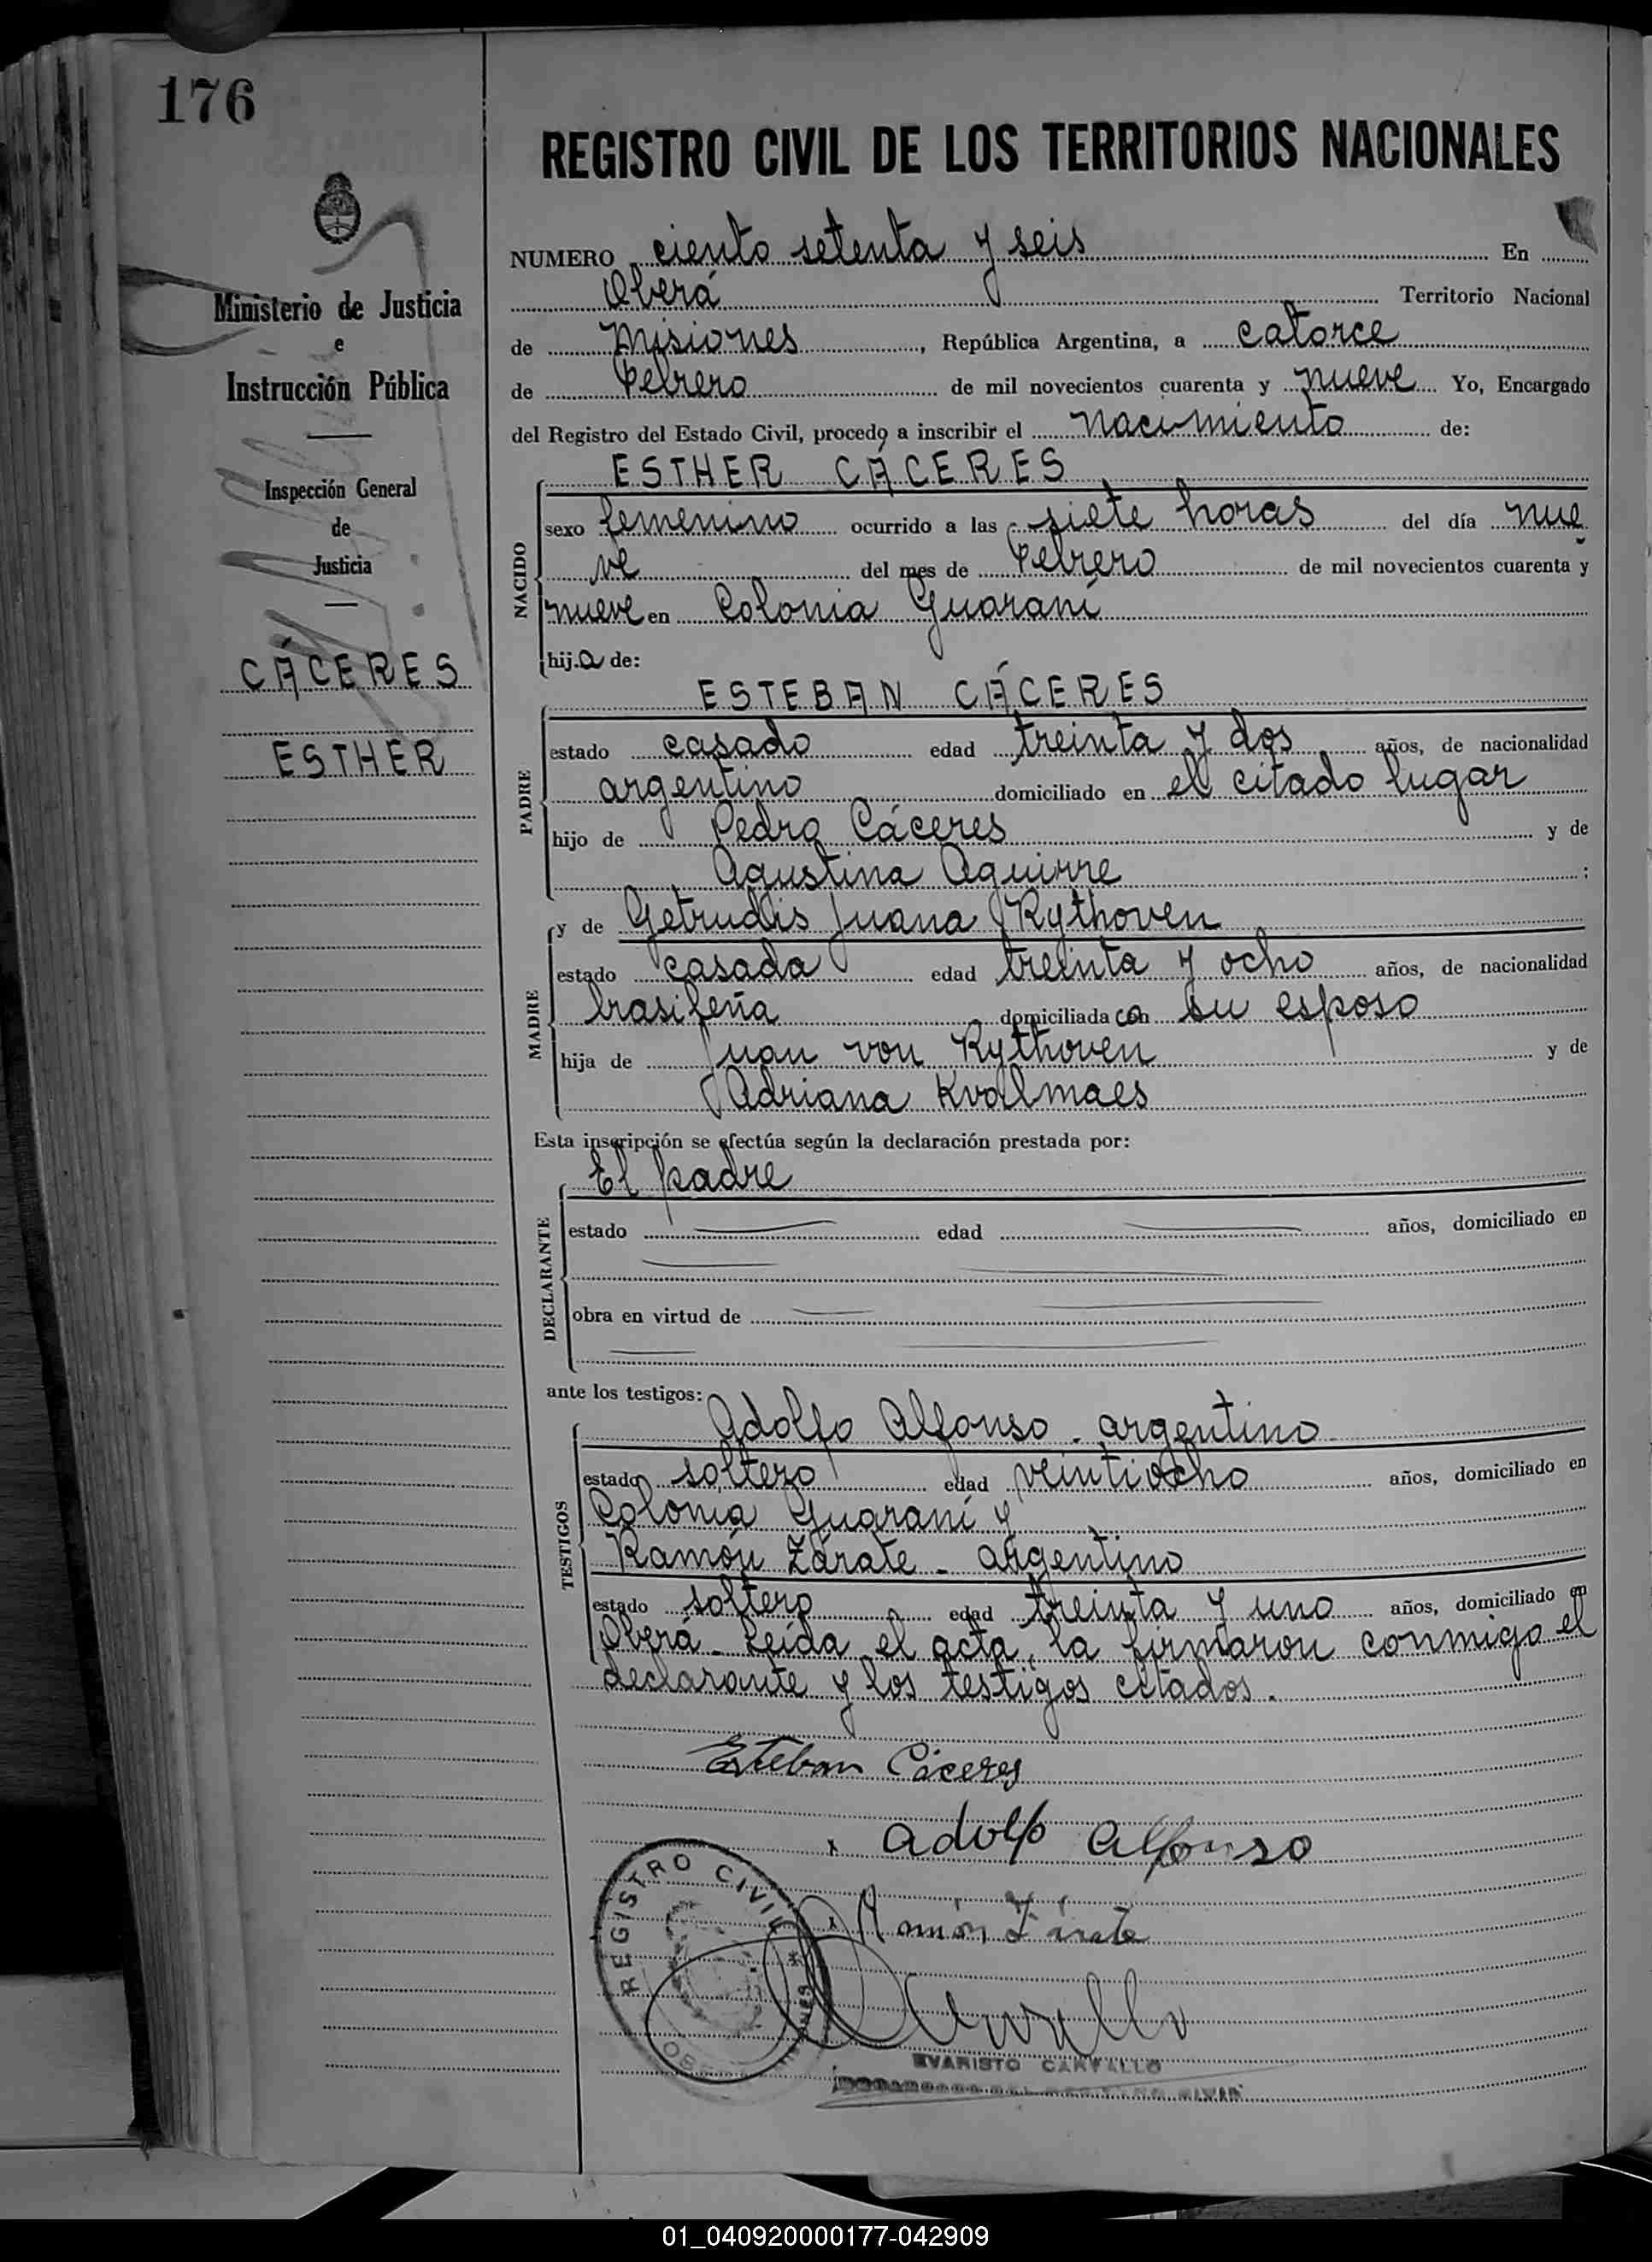 176
REGISTRO CIVIL DE LOS TERRITORIOS NACIONALES
Ministerio de Justicia
e
Instrucción Pública
Inspección General
de
Justicia
CÁCERES
ESTHER
NUMERO ciento setenta y seis En
Oberá Territorio Nacional
de Misiones, República Argentina, a catorce
de Febrero de mil novecientos cuarenta y nueve Yo, Encargado
del Registro del Estado Civil, procedo a inscribir el nacimiento de:
ESTHER CÁCERES
NACIDO
sexo femenino ocurrido a las siete horas del día nue
ve del mes de Febrero de mil novecientos cuarenta y
nueve en Colonia Guaraní
hija de:
ESTEBAN CÁCERES
PADRE
estado casado edad treinta y dos años, de nacionalidad
argentino domiciliado en el citado lugar
hijo de Pedro Cáceres y de
Agustina Aguirre;
MADRE
y de Getrudis Juana Rythoven
estado casada edad treinta y ocho años, de nacionalidad
brasileña domiciliada con su esposo
hija de Juan von Rythoven y de
Adriana Kvalmaes
Esta inscripción se efectúa según la declaración prestada por:
El padre
DECLARANTE
estado edad años, domiciliado en
obra en virtud de
ante los testigos:
Adolfo Alfonso - argentino
TESTIGOS
estado soltero edad veintiocho años, domiciliado en
Colonia Guaraní y
Ramón Zárate - argentino
estado soltero edad treinta y uno años, domiciliado en
Oberá - Leída el acta, la firmaron conmigo el
declarante y los testigos citados.
Esteban Cáceres
Adolfo Alfonso
Ramón Zárate
REGISTRO CIVIL
EVARISTO CARVALLO
01_040920000177-042909